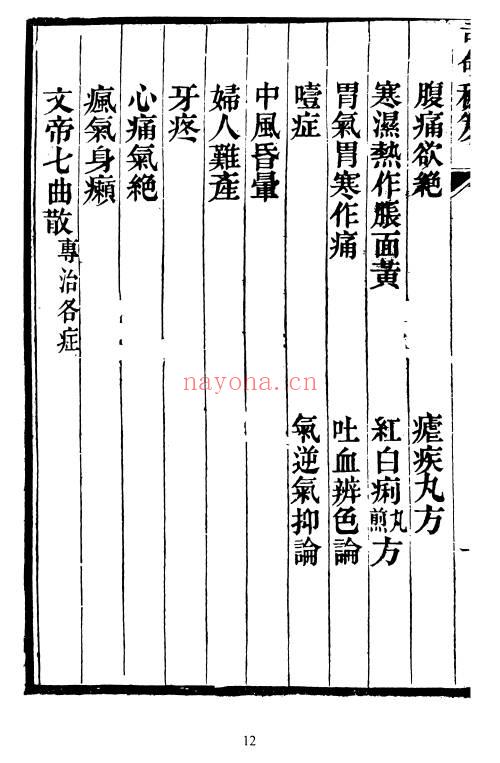 腹痛欲絕
瘧疾丸方
寒濕熱作脹面黃
紅白痢丸煎方
胃氣胃寒作痛
吐血辨色論
噎症
氣逆氣抑論
中風昏暈
婦人難產
牙疼
心痛氣絕
瘋氣身癩
文帝七曲散專治各症
nayona.cn
12